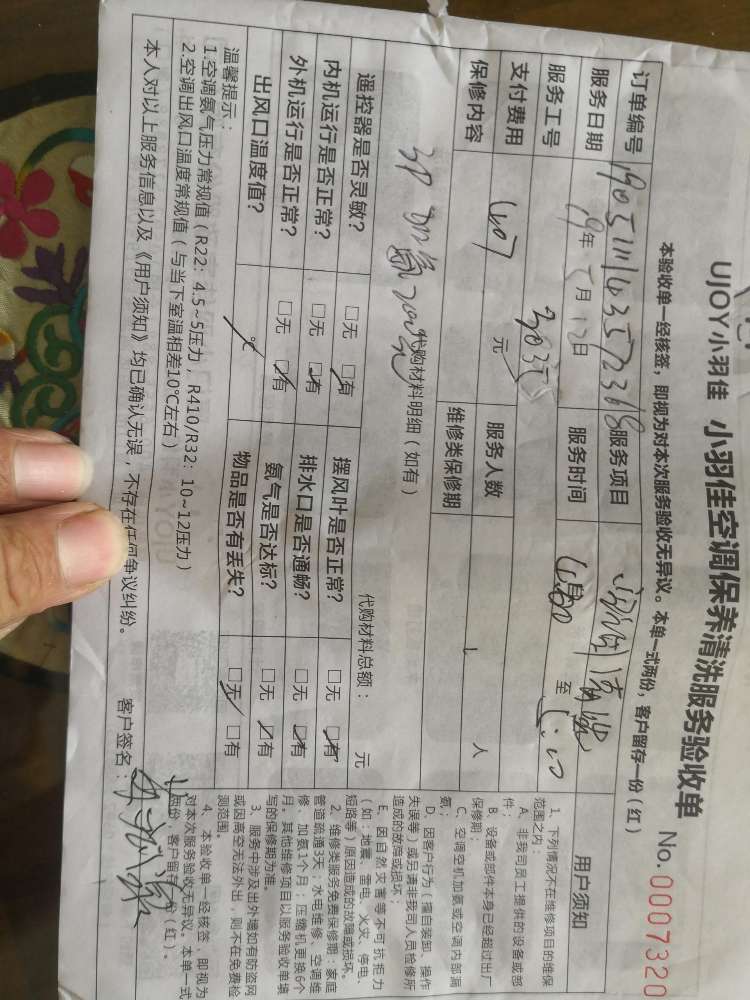 UJOY小羽佳 小羽佳空调保养清洗服务验收单 No. 0007320
本验收单一经核签，即视为对本次服务验收无异议。本单一式两份，客户留存一份（红）
订单编号 服务项目
服务日期 19年5月12日 服务时间 至
服务工号
支付费用 元 服务人数 1 人
保修内容 维修类保修期
代购材料明细（如有） 代购材料总额： 元
遥控器是否灵敏？ □无 □有 摆风叶是否正常？ □无 □有
内机运行是否正常？ □无 □有 排水口是否通畅？ □无 □有
外机运行是否正常？ □无 □有 氨气是否达标？ □无 □有
出风口温度值？ ℃ 物品是否有丢失？ □无 □有
温馨提示：
1.空调氨气压力常规值（R22：4.5~5压力，R410/R32：10~12压力）
2.空调出风口温度常规值（与当下室温相差10℃左右）
本人对以上服务信息以及《用户须知》均已确认无误，不存在任何争议纠纷。 客户签名：
用户须知
1、下列情况不在维修项目的维保
范围之内：
A、非我司员工提供的设备或部
件；
B、设备或部件本身已经超过出厂
保修期；
C、空调空机加氨或空调内部漏
氨；
D、因客户行为（擅自装卸、操作
失误等）或另请非我司人员检修所
造成的故障或损坏；
E、因自然灾害等不可抗拒力
（如：地震、雷电、火灾、停电、
短路等）原因造成的故障或损坏。
2、维修类服务免费保修期：家庭
管道疏通3天；水电维修、空调维
修、加氨1个月；压缩机更换6个
月。其他维修项目以服务验收单填
写的保修期为准。
3、服务中涉及出外墙如有防盗网
或因高空无法外出，则不在免费检
测范围。
4、本验收单一经核签，即视为
对本次服务验收无异议。本单一式
两份，客户留存一份（红）。